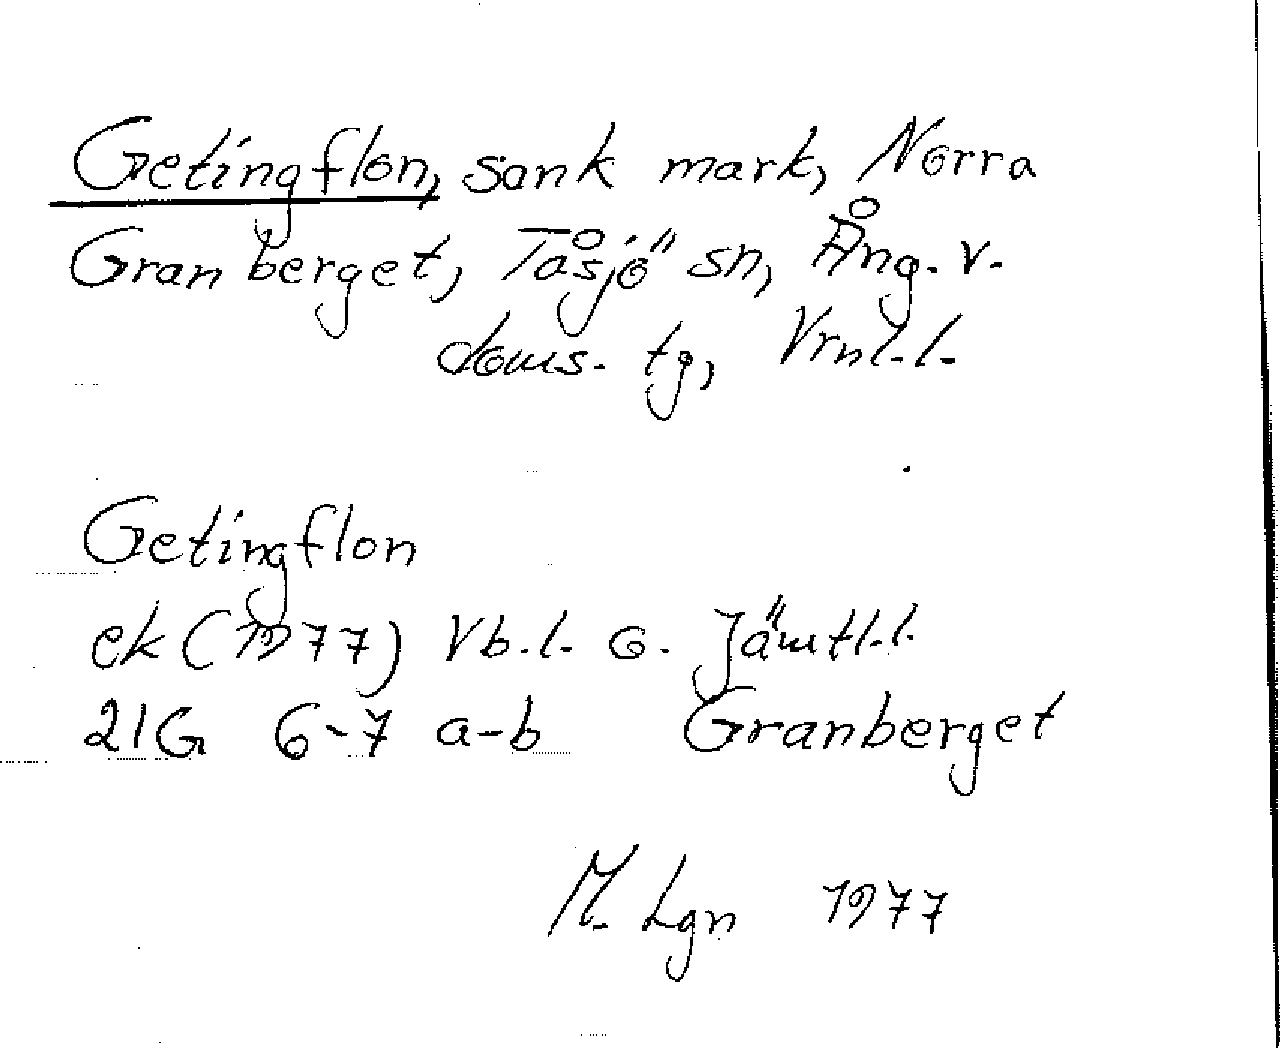 Getingflon, sank mark, Norra
Granberget, Tåsjö sn, Ång. v.
doms. tg, Vrnl.l.
Getingflon
ek (1977) Vb.l. o. Jämtl.l.
21G 6-7 a-b Granberget
M. Lgn 1977